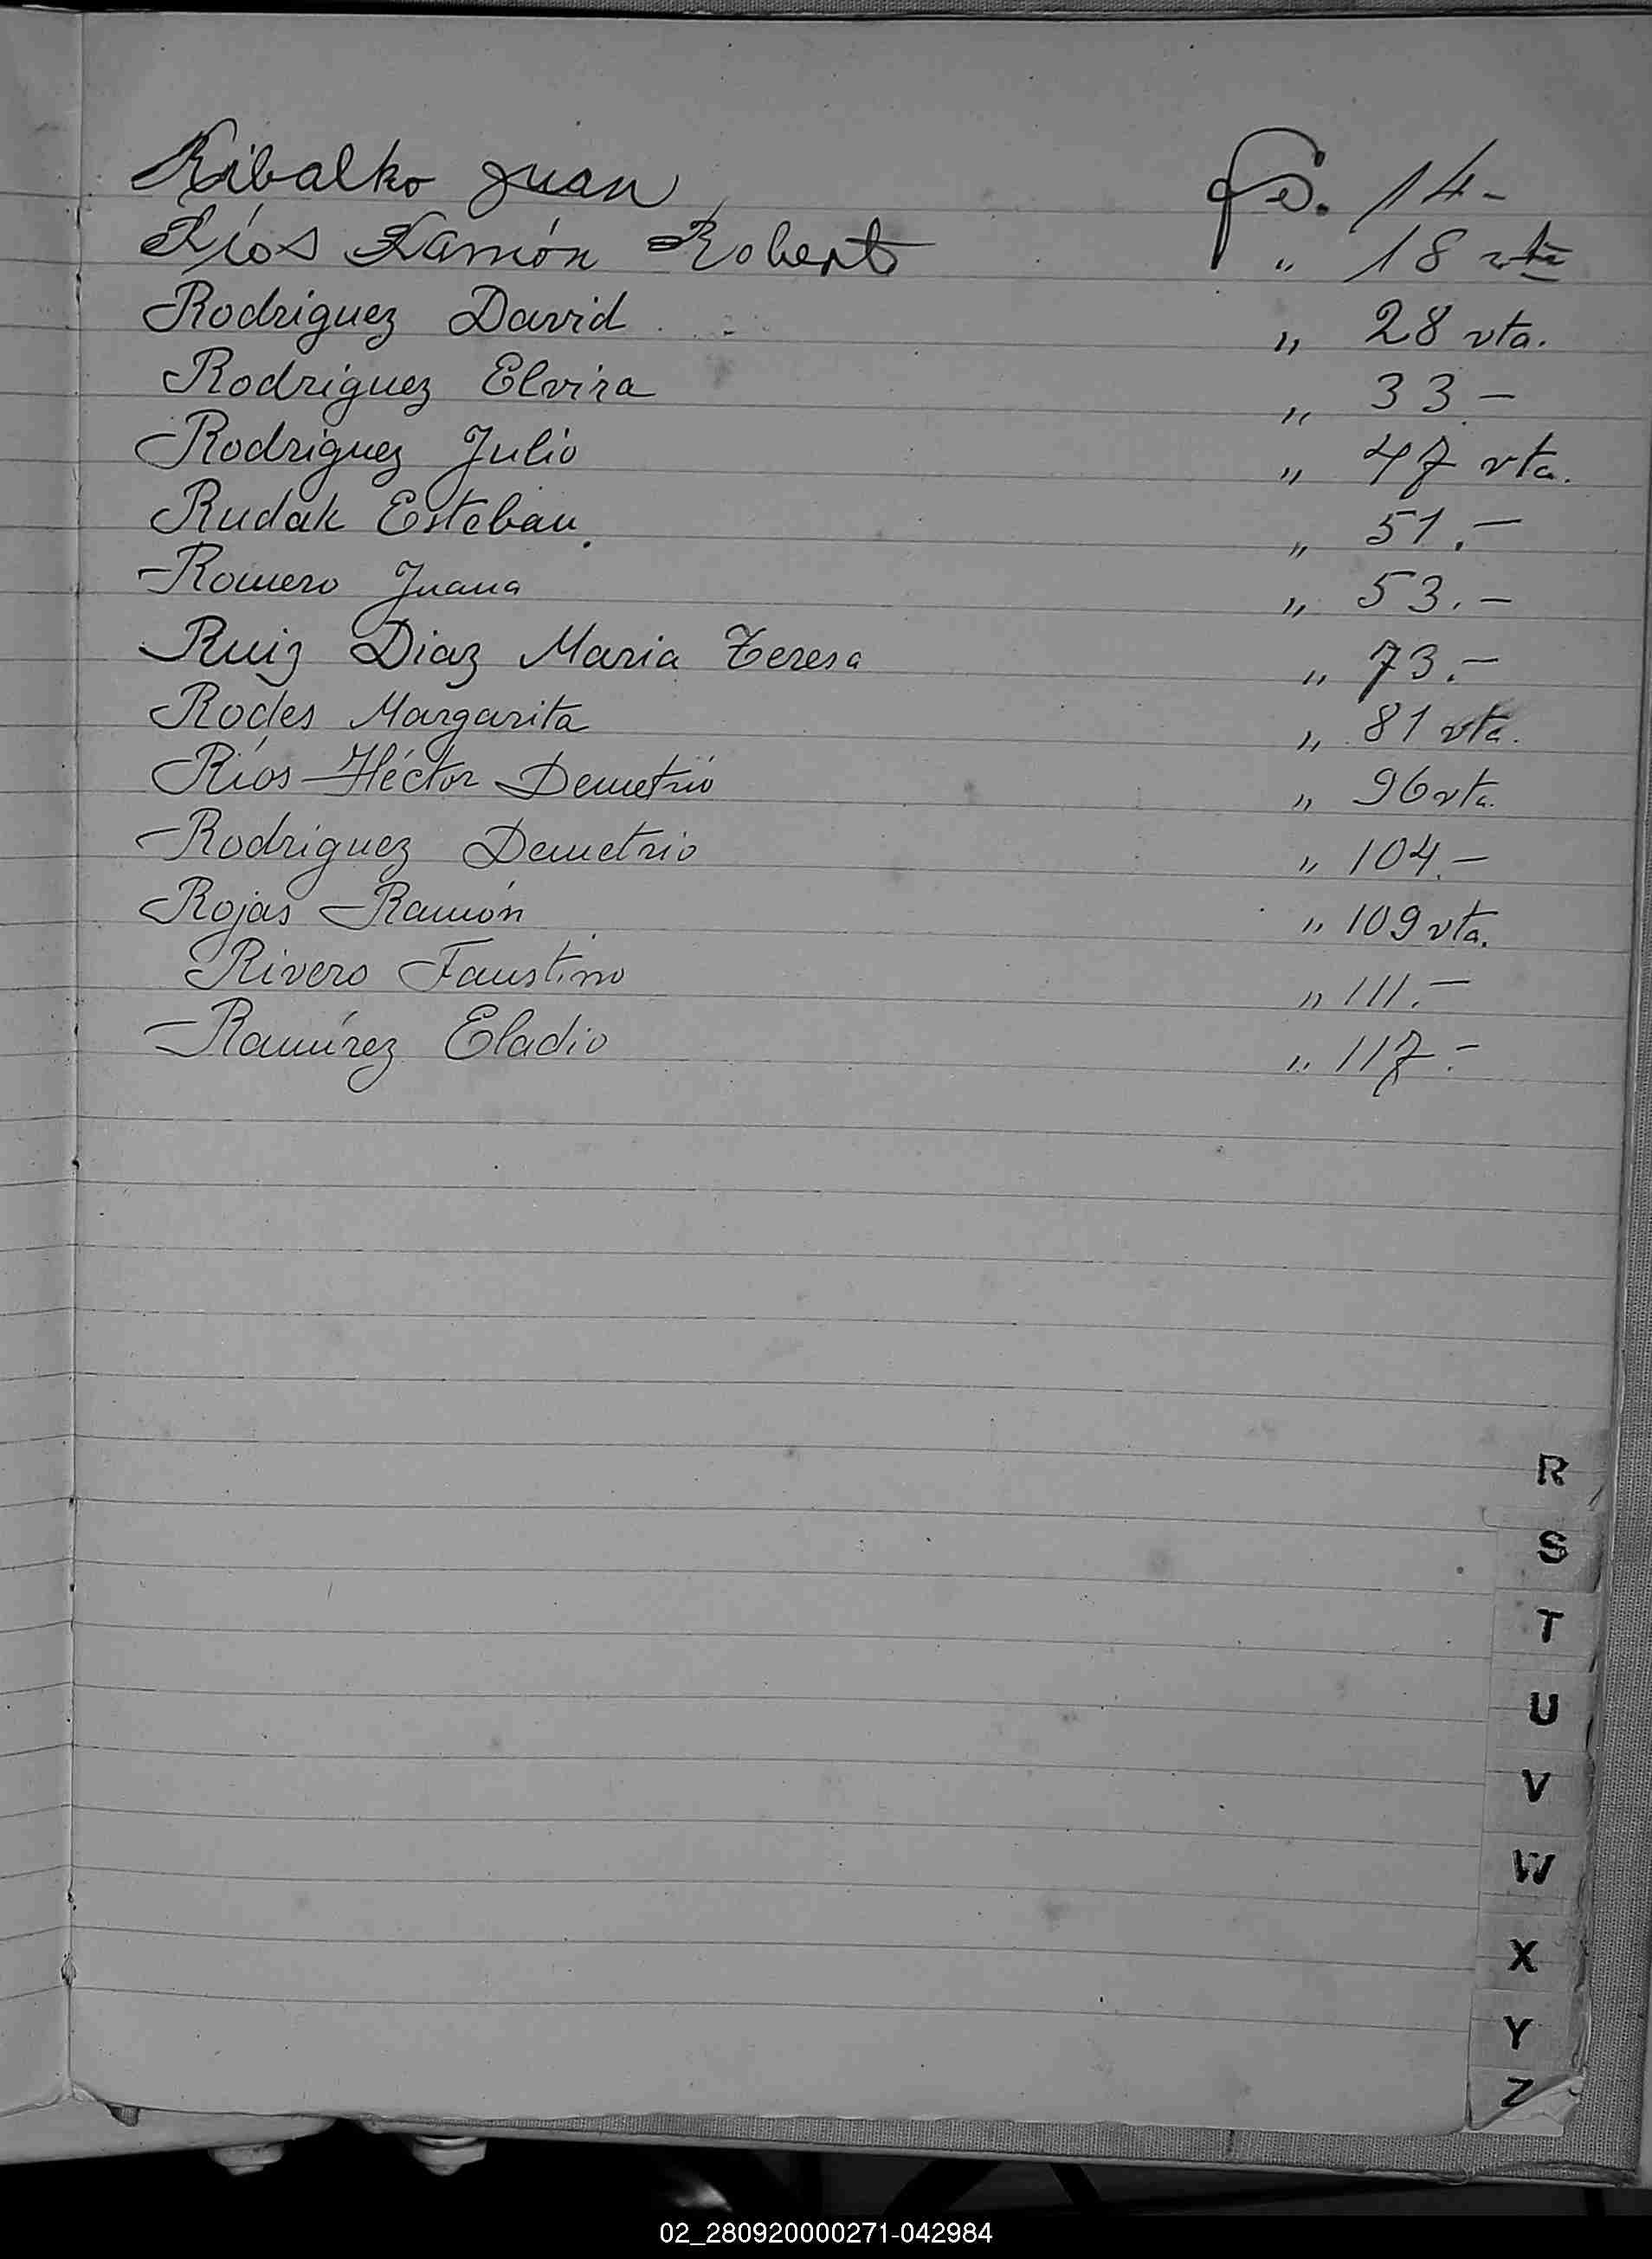 Ribalko Juan fs. 14-
Ríos Ramón Roberto " 18 vta
Rodriguez David " 28 vta.
Rodriguez Elvira " 33 -
Rodriguez Julio " 47 vta.
Rudak Esteban. " 51.-
Romero Juana " 53.-
Ruiz Diaz Maria Teresa " 73.-
Rodes Margarita " 81 vta.
Ríos Héctor Demetrio " 96 vta.
Rodriguez Demetrio " 104.-
Rojas Ramón " 109 vta.
Rivero Faustino " 111.-
Ramírez Eladio " 117.-
R
S
T
U
V
W
X
Y
Z
02_280920000271-042984